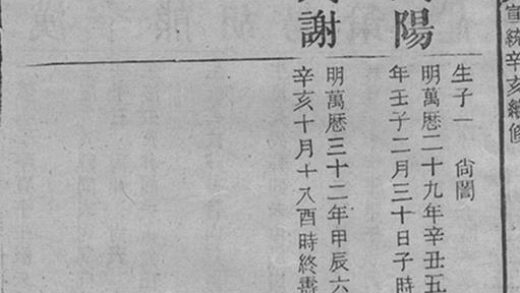 宣統辛亥續修
陽
生子一 尙閶
明萬曆二十九年辛丑五
年壬子二月三十日子時
謝
明萬曆三十二年甲辰六
辛亥十月十八酉時終壽